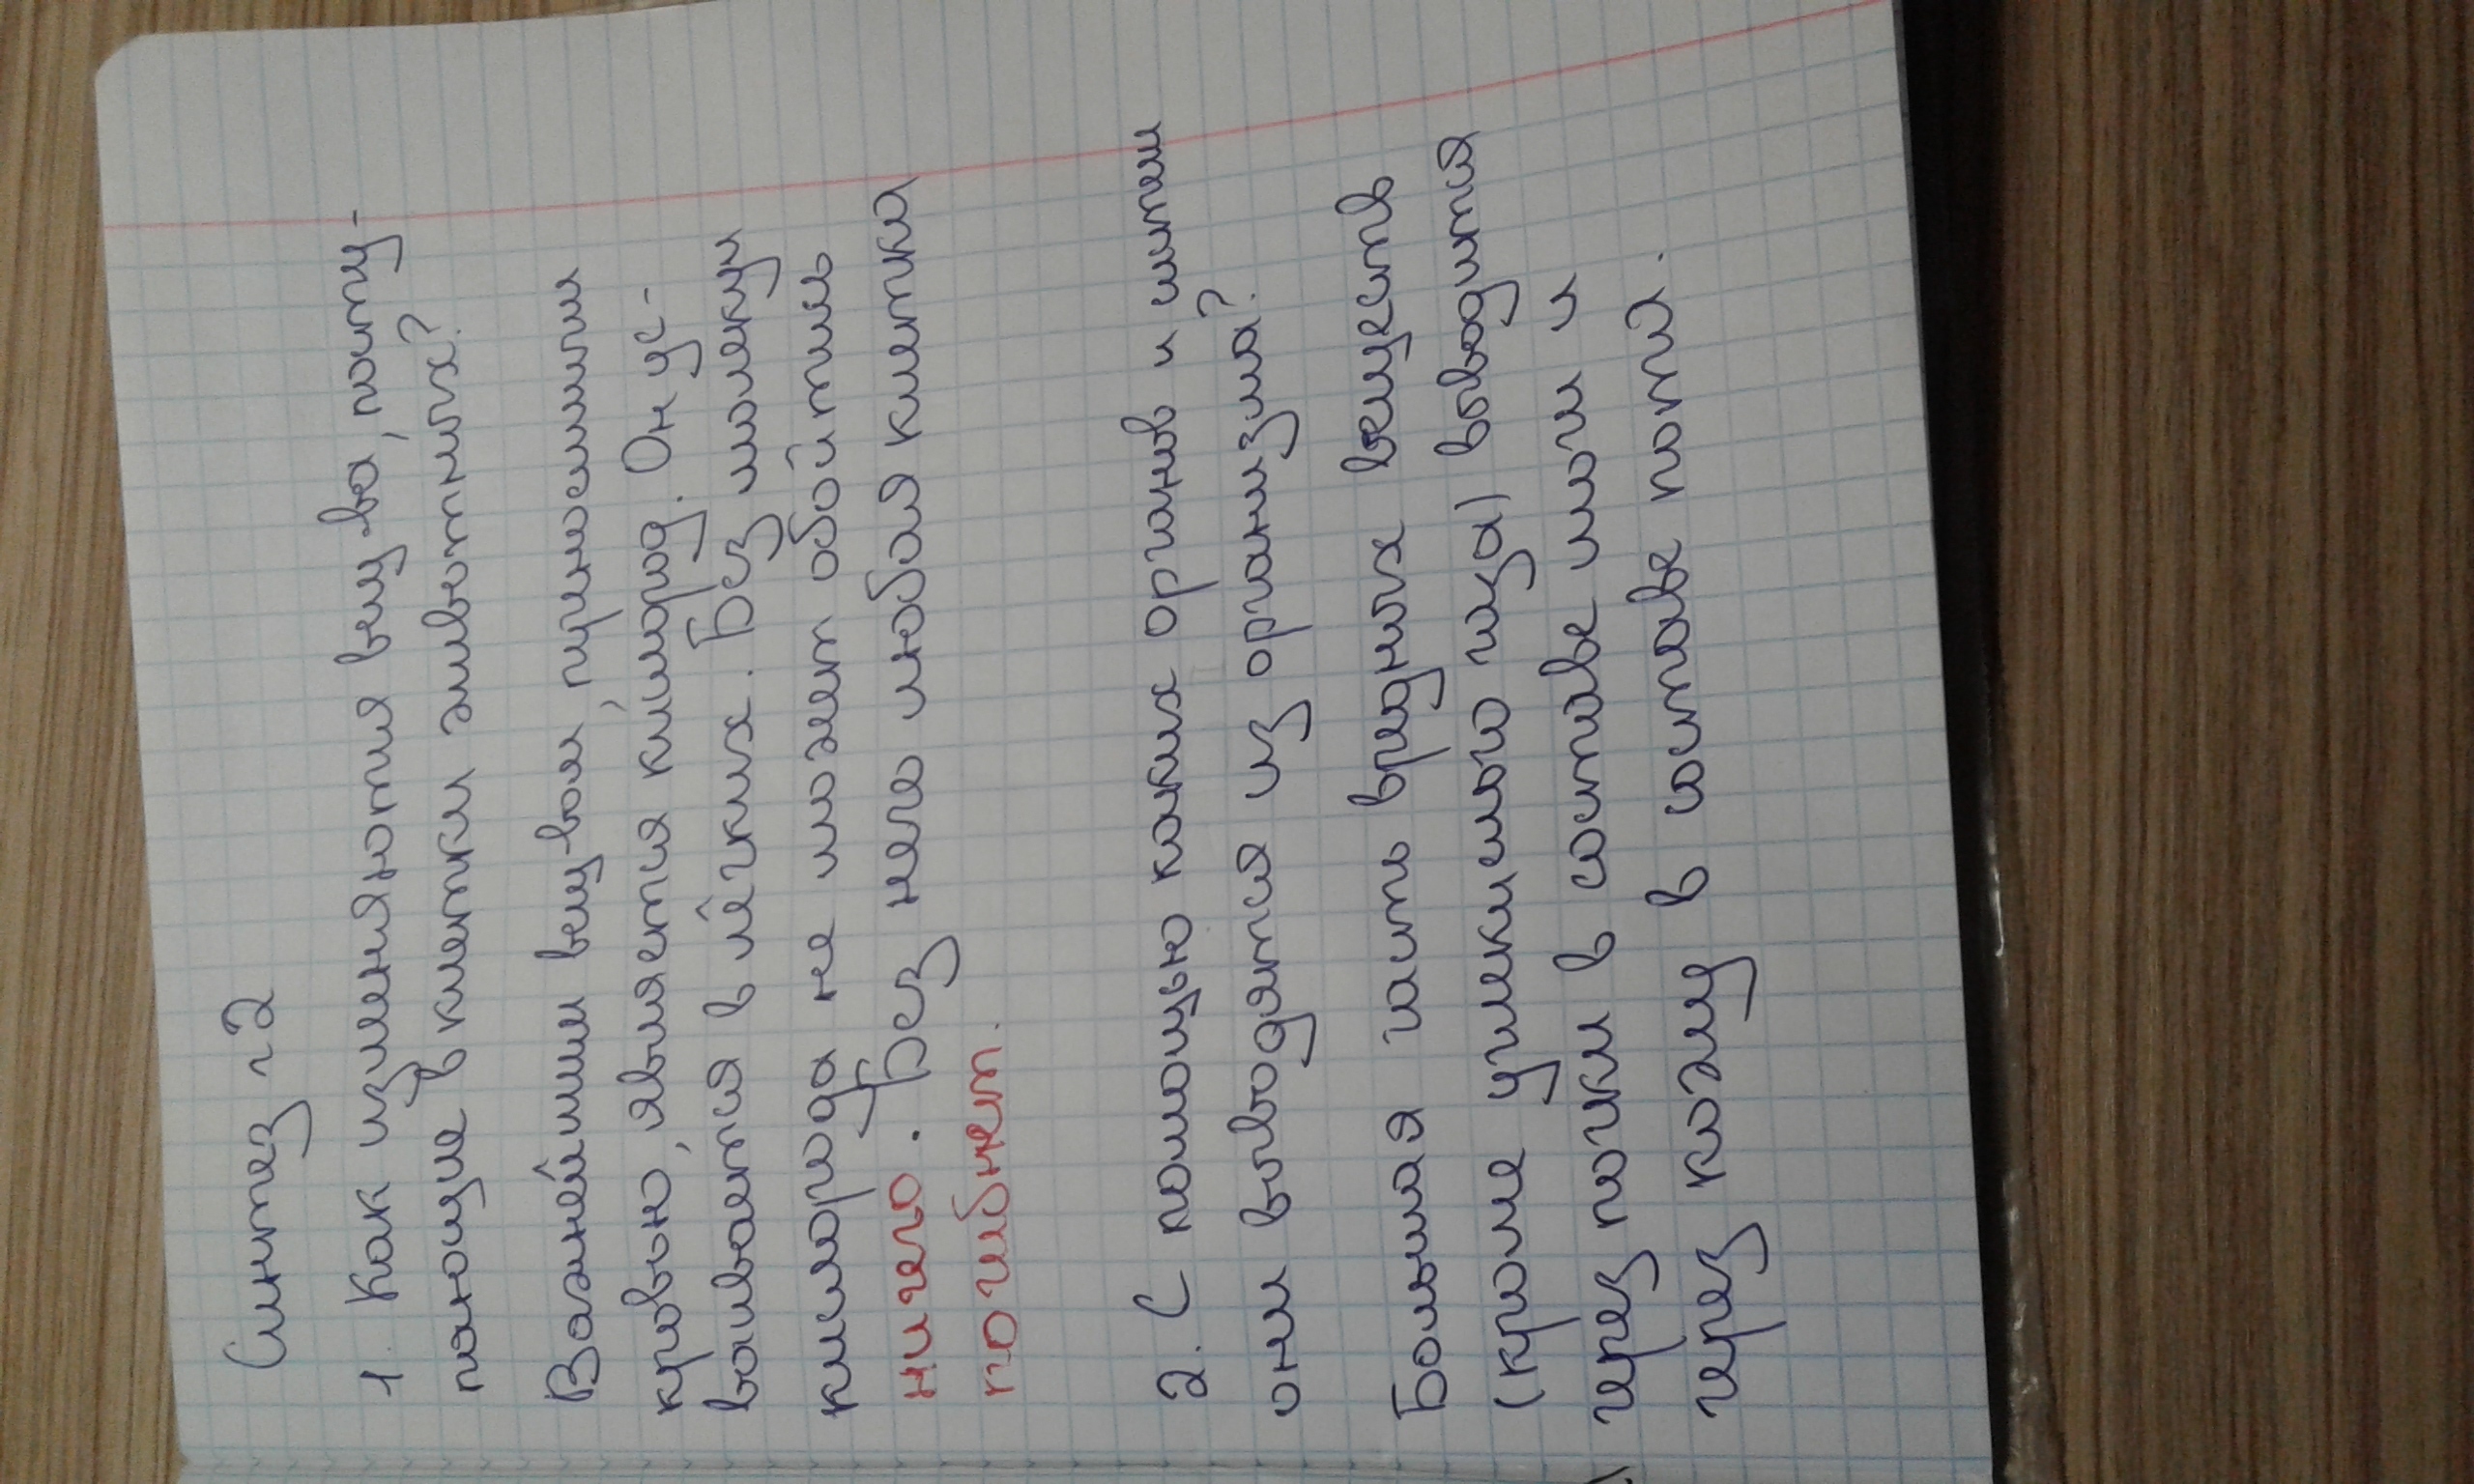 Синтез ~2
1. Как изменяются вещ-ва, посту-
пающие в клетки животных?
Важнейшим вещ-вом, приносимым
кровью, является кислород. Он ус-
ваивается в лёгких. Без молекул
кислорода не может обойтись
ничего. Без него любая клетка
погибнет.
2. С помощью каких органов и систем
они выводятся из организма?
Большая часть вредных веществ
(кроме углекислого газа) выводится
через почки в составе мочи и
через кожу в составе пота.